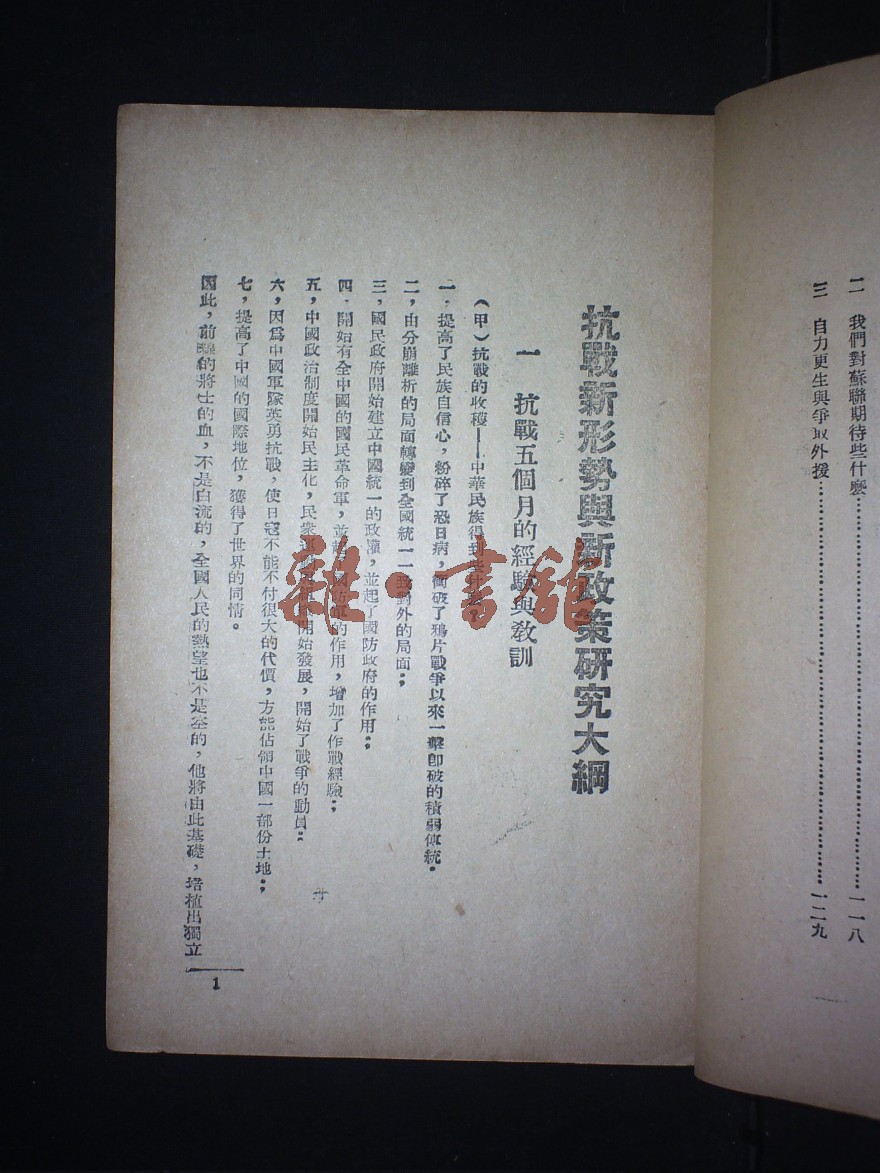 二　我們對蘇聯期待些什麽……一一八
三　自力更生與爭取外援……一二九
抗戰新形勢與新政策研究大綱
一　抗戰五個月的經驗與教訓
（甲）抗戰的收穫——中華民族得到些什麽？
一．提高了民族自信心，粉碎了恐日病，衝破了鴉片戰爭以來一擊卽破的積弱傳統．
二，由分崩離析的局面轉變到全國統一一致對外的局面；
三，國民政府開始建立中國統一的政權，並起了國防政府的作用；
四．開始有全中國的國民革命軍，並起國防軍的作用，增加了作戰經驗；
五，中國政治制度開始民主化，民衆運動開始發展，開始了戰爭的動員；
六，因爲中國軍隊英勇抗戰，使日寇不能不付很大的代價，方能佔領中國一部份土地；
七，提高了中國的國際地位，獲得了世界的同情。
因此，前線的將士的血，不是白流的，全國人民的熱望也不是空的，他將由此基礎，培植出獨立
1
雜·書館